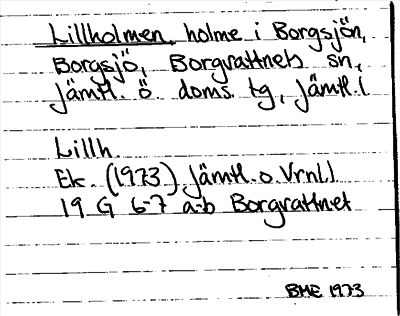 Lillholmen, holme i Borgsjön,
Borgsjö, Borgvattnets sn,
Jämtl. ö. doms. tg, Jämtl. l.
Lillh.
Ek. (1973) Jämtl. o. Vrnl. l.
19 G 6-7 a-b Borgvattnet
BME 1973